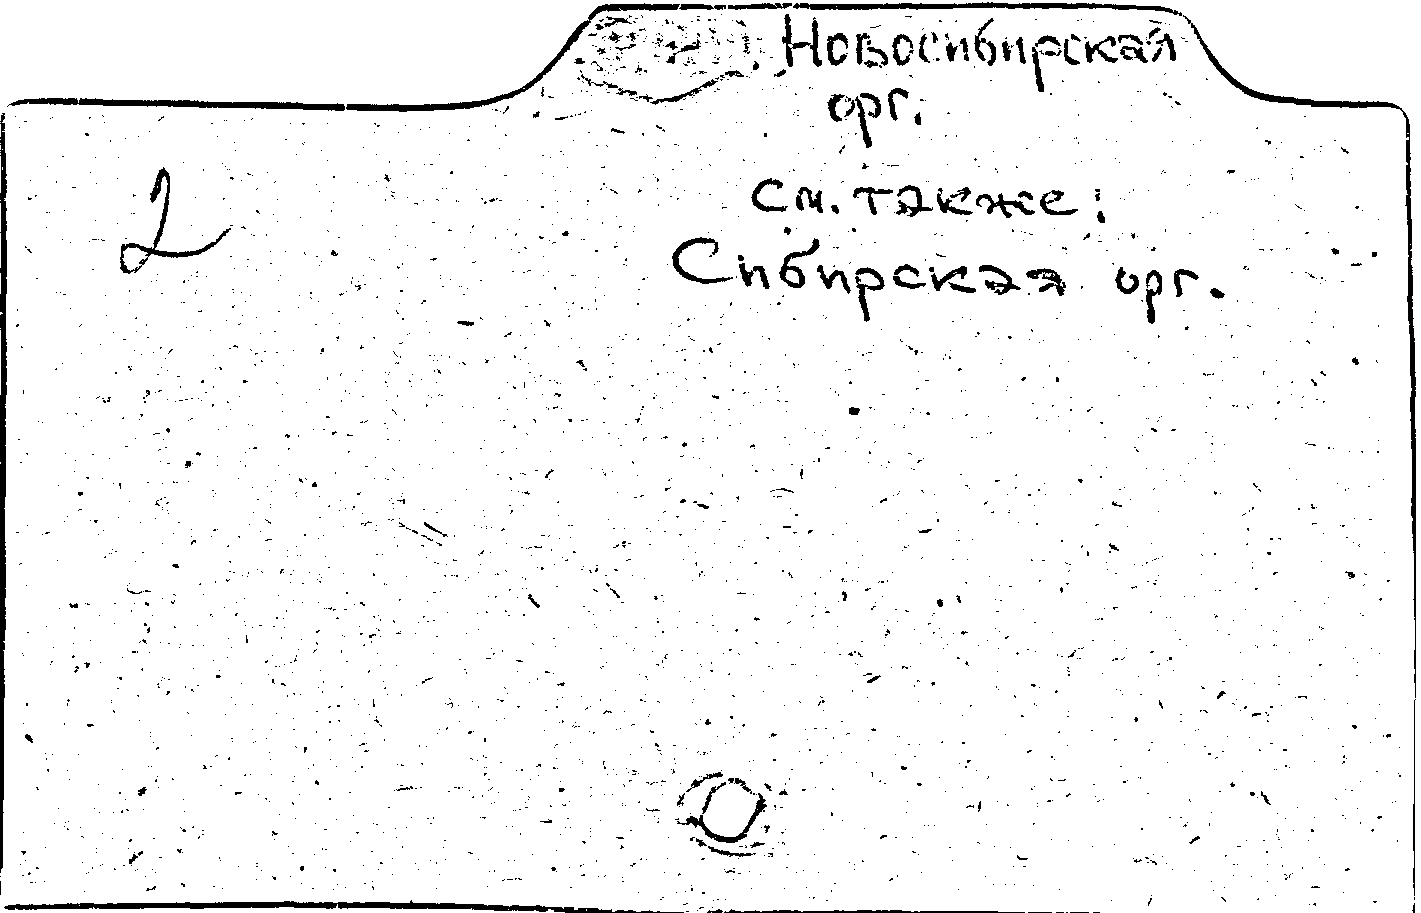 Новосибирская
орг.
2
см. также:
Сибирская орг.